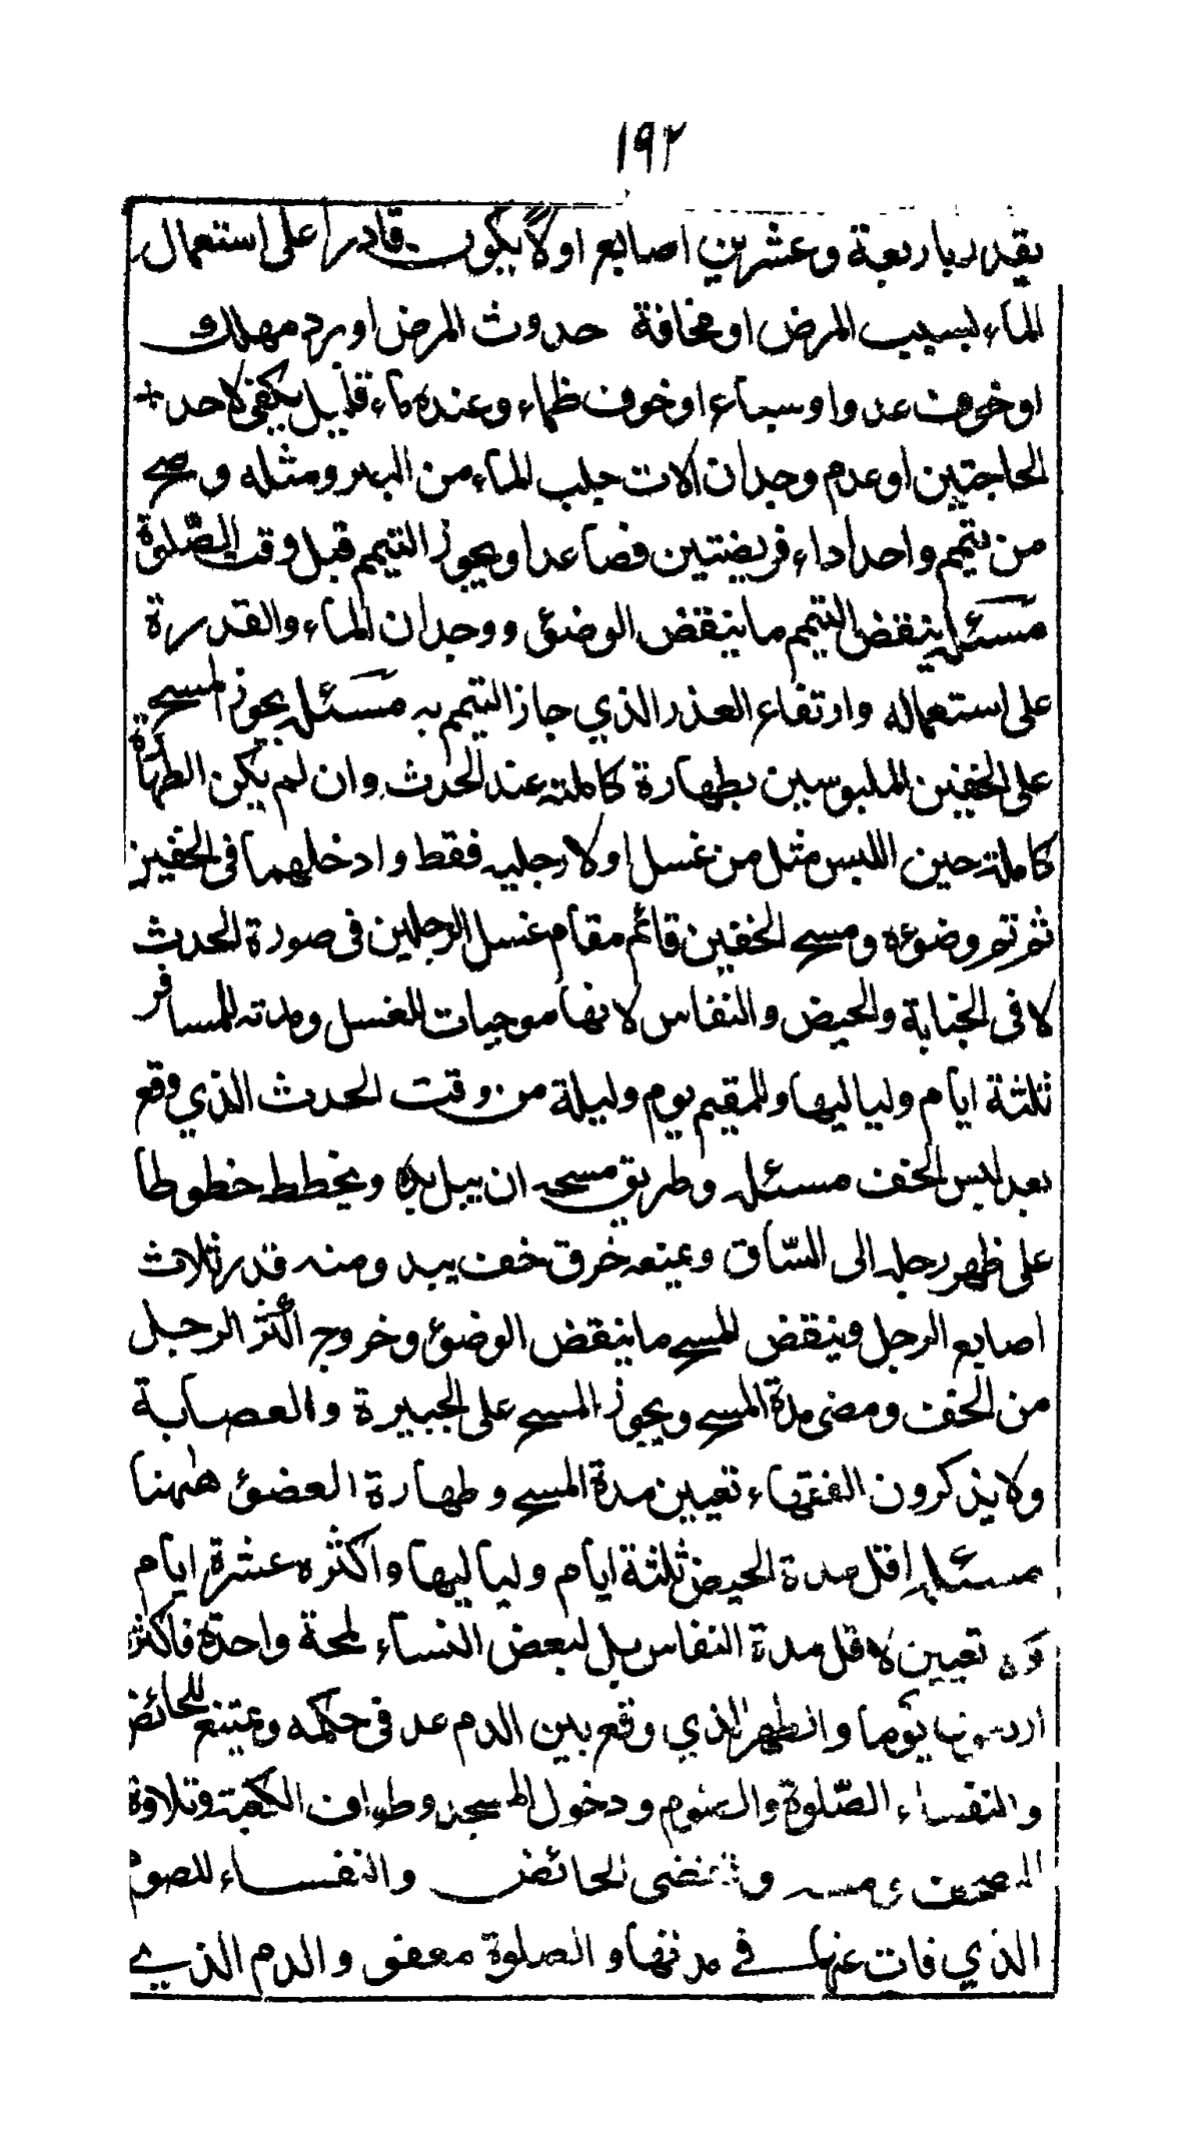 ١٩٢
يقدر باربعة وعشرين اصابع اولا يكون قادرا على استعمال
الماء لسبب المرض او مخافة حدوث المرض او برد مهلك
او خوف عدو او سباع او خوف ظماء وعنده ماء قليل يكفى لاحد
الحاجتين او عدم وجدان الات جلب الماء من البير ومثله وصح
من تيمم واحد اداء فريضتين فصاعدا ويجوز التيمم قبل وقت الصّلوة
مسئلہ ينقض التيمم ما ينقض الوضؤ ووجدان الماء والقدرة
على استعماله وارتفاع العذر الذي جاز التيمم به مسئلہ يجوز المسح
على الخفين الملبوسين بطهارة كاملة عند الحدث وان لم يكن الطهارة
كاملة حين اللبس مثل من غسل اولا رجليه فقط وادخلهما فى الخفين
ثم تم وضوءه ومسح الخفين قائم مقام غسل الرجلين فى صورة الحدث
لا فى الجنابة والحيض والنفاس لانها موجبات للغسل ومدته للمسافر
ثلثة ايام ولياليها وللمقيم يوم وليلة من وقت الحدث الذي وقع
بعد لبس الخف مسئلہ وطريق مسحه ان يبل يده ويخطط خطوطا
على ظهر رجله الى السّاق ويمنعه خرق خف يبد ومنه قدر ثلاث
اصابع الرجل وينقض المسح ما ينقض الوضؤ وخروج اكثر الرجل
من الخف ومضى مدة المسح ويجوز المسح على الجبيرة والعصابة
ولا يذكرون الفقهاء تعيين مدة المسح وطهارة العضؤ ههنا
مسئلہ اقل مدة الحيض ثلثة ايام ولياليها واكثره عشرة ايام
تعيين لاقل مدة النفاس بل لبعض النساء لمحة واحدة فاكثره
يوما والطهر الذي وقع بين الدم عد فى حكمه ويمتنع للحائض
والنفساء الصّلوة والصوم ودخول المسجد وطواف الكعبة وتلاوة
المصحف ومسه وتقضى الحائض والنفساء للصوم
الذي فات عنها فى مدتها والصلوة معفو والدم الذي